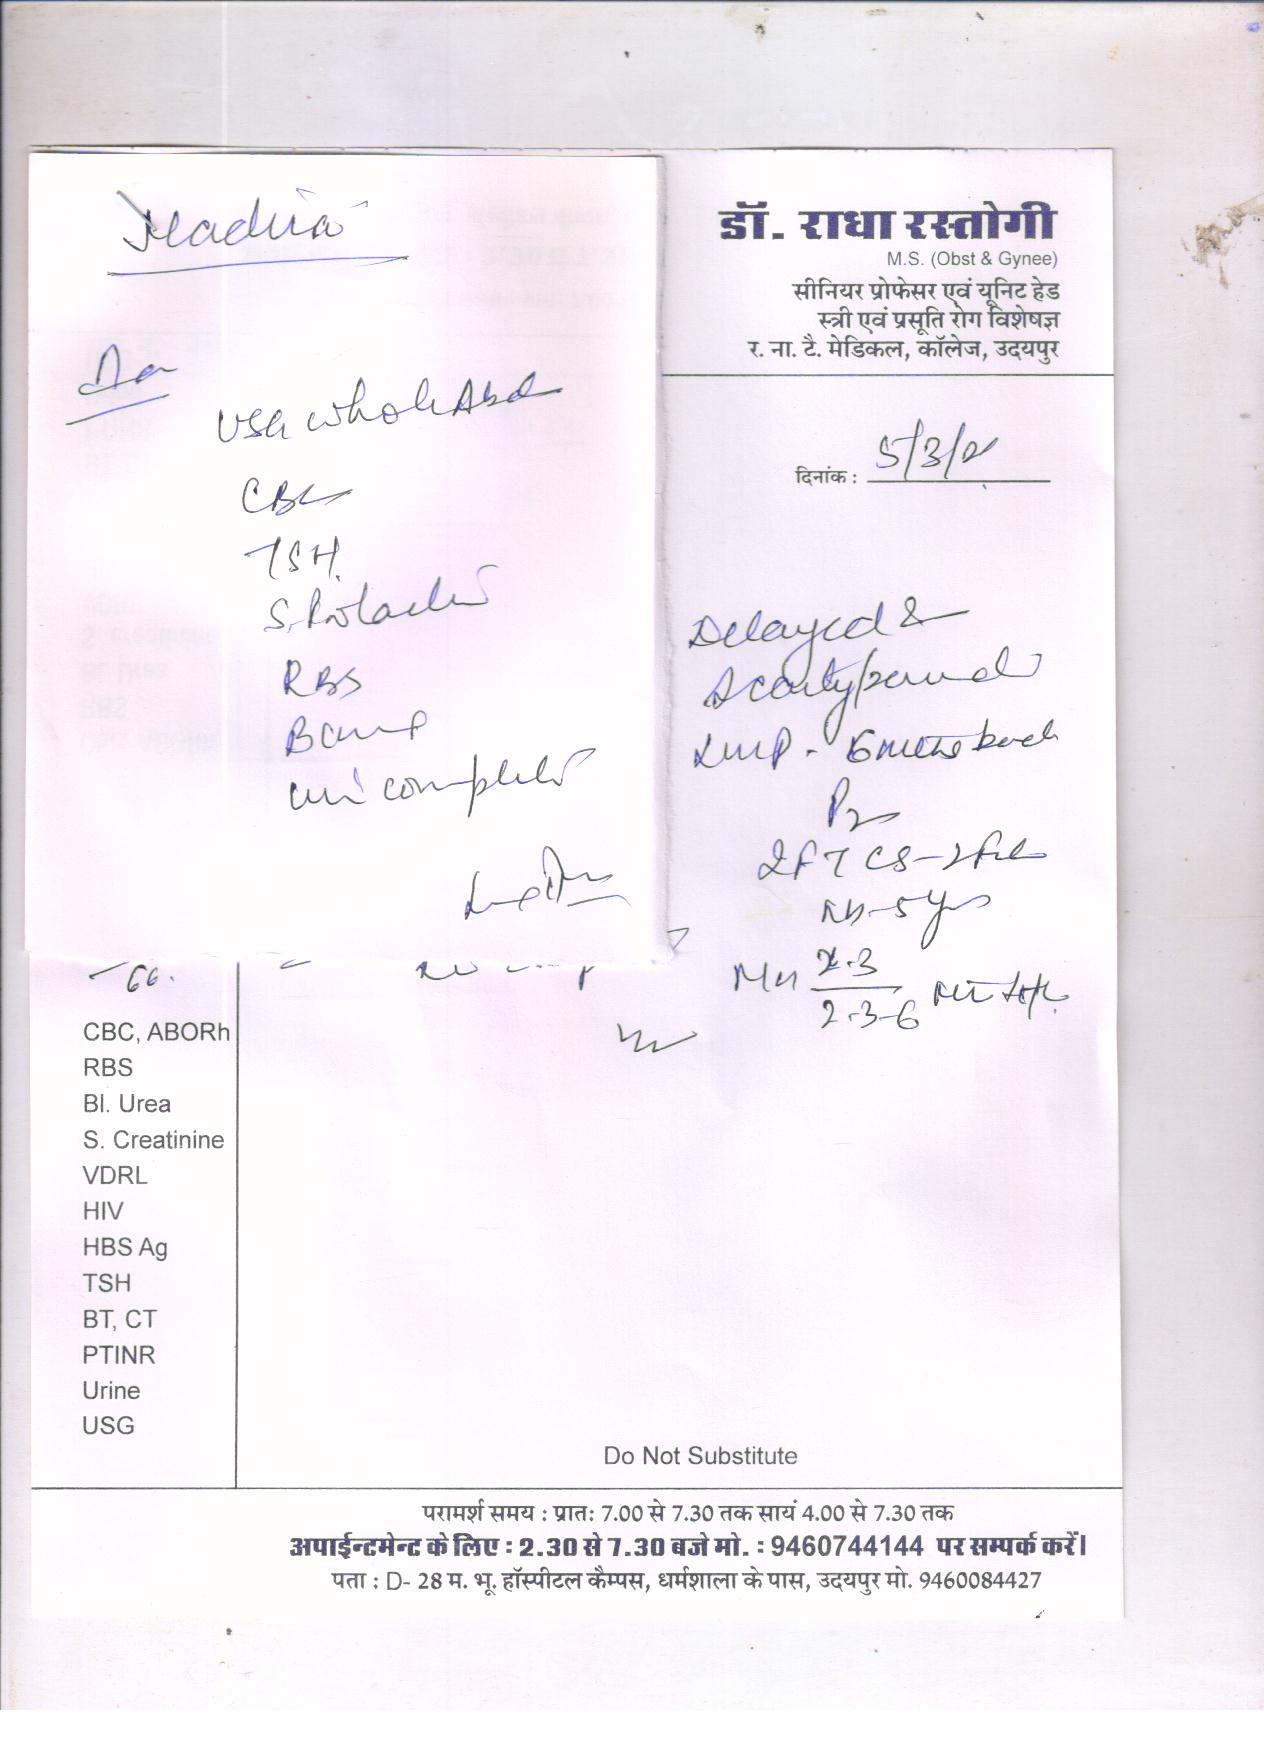 डॉ. राधा रस्तोगी
M.S. (Obst & Gynee)
सीनियर प्रोफेसर एवं यूनिट हेड
स्त्री एवं प्रसूति रोग विशेषज्ञ
र. ना. टै. मेडिकल, कॉलेज, उदयपुर
दिनांक : 5/3/21
Adv
USG whole Abd
CBC
TSH
S. Prolactin
RBS
urine complete
Delayed &
Scanty period
LMP -
P2
2 FT CS -
5 yrs
MH 2-3
2-3-6
CBC, ABORh
RBS
Bl. Urea
S. Creatinine
VDRL
HIV
HBS Ag
TSH
BT, CT
PTINR
Urine
USG
Do Not Substitute
परामर्श समय : प्रातः 7.00 से 7.30 तक सायं 4.00 से 7.30 तक
अपाईन्टमेन्ट के लिए : 2.30 से 7.30 बजे मो. : 9460744144 पर सम्पर्क करें।
पता : D- 28 म. भू. हॉस्पीटल कैम्पस, धर्मशाला के पास, उदयपुर मो. 9460084427